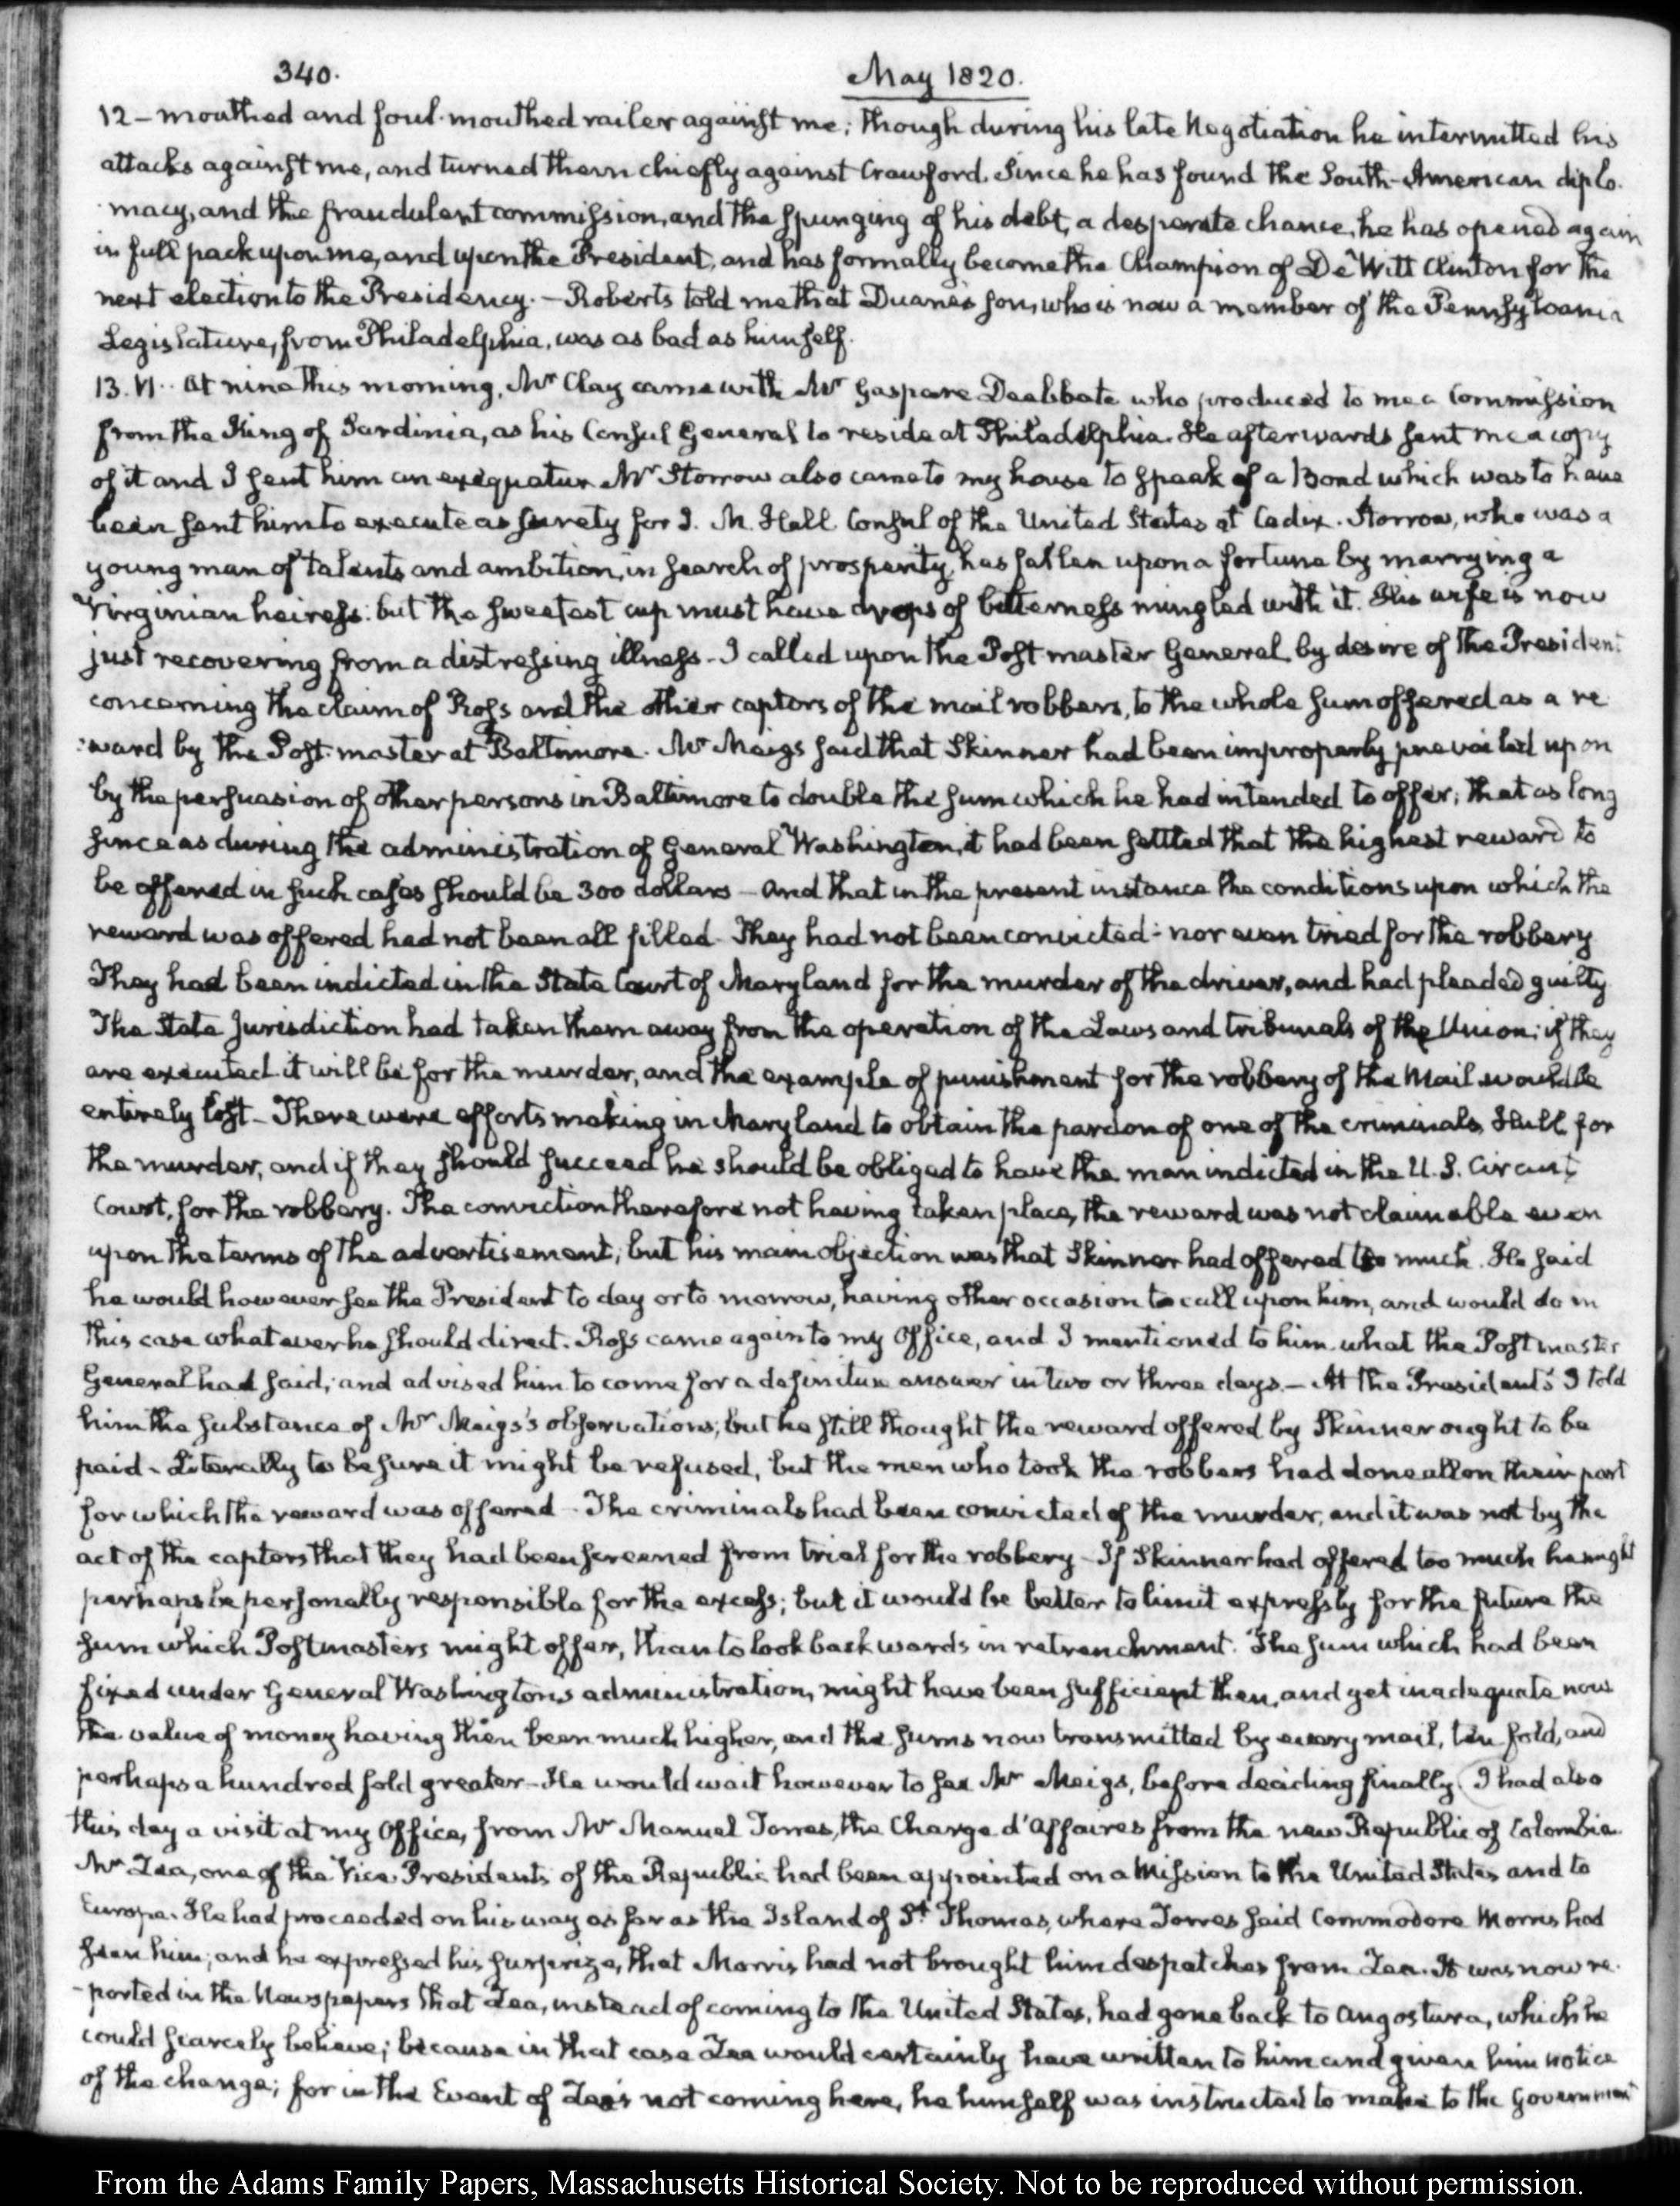 340. May 1820.
12 – mouthed and foul-mouthed railer against me; though during his late Negotiation he intermitted his
attacks against me, and turned them chiefly against Crawford. Since he has found the South-American diplo-
macy, and the fraudulent commission, and the spunging of his debt, a desperate chance, he has opened again
in full pack upon me, and upon the President, and has formally become the Champion of De Witt Clinton for the
next election to the Presidency. – Roberts told me that Duane's son, who is now a member of the Pennsylvania
Legislature, from Philadelphia, was as bad as himself.
13. VI.. At nine this morning, Mr Clay came with Mr Gaspare Deabbate who produced to me a Commission
from the King of Sardinia, as his Consul General to reside at Philadelphia. He afterwards sent me a copy
of it and I sent him an exequatur. Mr Storrow also came to my house to speak of a Bond which was to have
been sent him to execute as surety for J. M. Hall Consul of the United States at Cadix. Storrow, who was a
young man of talents and ambition, in search of prosperity, has fallen upon a fortune by marrying a
Virginian heiress: but the sweetest cup must have drops of bitterness mingled with it. His wife is now
just recovering from a distressing illness – I called upon the Post master General by desire of the President
concerning the claim of Ross and the other captors of the mail robbers, to the whole sum offered as a re-
ward by the Post-master at Baltimore. Mr Meigs said that Skinner had been improperly prevailed upon
by the persuasion of other persons in Baltimore to double the sum which he had intended to offer; that as long
since as during the administration of General Washington, it had been settled that the highest reward to
be offered in such cases should be 300 dollars – And that in the present instance the conditions upon which the
reward was offered had not been all filled. They had not been convicted – nor even tried for the robbery
They had been indicted in the State Court of Maryland for the murder of the driver, and had pleaded guilty
The State Jurisdiction had taken them away from the operation of the Laws and tribunals of the Union; if they
are executed it will be for the murder, and the example of punishment for the robbery of the Mail would be
entirely lost – There were efforts making in Maryland to obtain the pardon of one of the criminals, Hull for
the murder, and if they should succeed he should be obliged to have the man indicted in the U.S. Circuit
Court, for the robbery. The conviction therefore not having taken place, the reward was not claimable even
upon the terms of the advertisement; but his main objection was that Skinner had offered too much. He said
he would however see the President to day or to morrow, having other occasion to call upon him, and would do in
this case whatever he should direct. Ross came again to my Office, and I mentioned to him what the Post master
General had said; and advised him to come for a definitive answer in two or three days. – At the President's I told
him the substance of Mr Meigs's observations; but he still thought the reward offered by Skinner ought to be
paid – Literally to be sure it might be refused, but the men who took the robbers had done all on their part
for which the reward was offered – The criminals had been convicted of the murder, and it was not by the
act of the captors that they had been screened from trial for the robbery – If Skinner had offered too much he might
perhaps be personally responsible for the excess; but it would be better to limit expressly for the future the
sum which Postmasters might offer, than to look backwards in retrenchment. The sum which had been
fixed under General Washington's administration, might have been sufficient then, and yet inadequate now
the value of money having then been much higher, and the sums now transmitted by every mail, ten fold, and
perhaps a hundred fold greater – He would wait however to see Mr Meigs, before deciding finally. I had also
this day a visit at my Office, from Mr Manuel Torres, the Charge d'Affaires from the new Republic of Colombia.
Mr Zea, one of the Vice Presidents of the Republic had been appointed on a Mission to the United States and to
Europe. He had proceeded on his way as far as the Island of St Thomas, where Torres said Commodore Morris had
seen him; and he expressed his surprize, that Morris had not brought him despatches from Zea. It was now re-
-ported in the Newspapers that Zea, instead of coming to the United States, had gone back to Angostura, which he
could scarcely believe; because in that case Zea would certainly have written to him and given him notice
of the change; for in the Event of Zea's not coming here, he himself was instructed to make to the Government
From the Adams Family Papers, Massachusetts Historical Society. Not to be reproduced without permission.